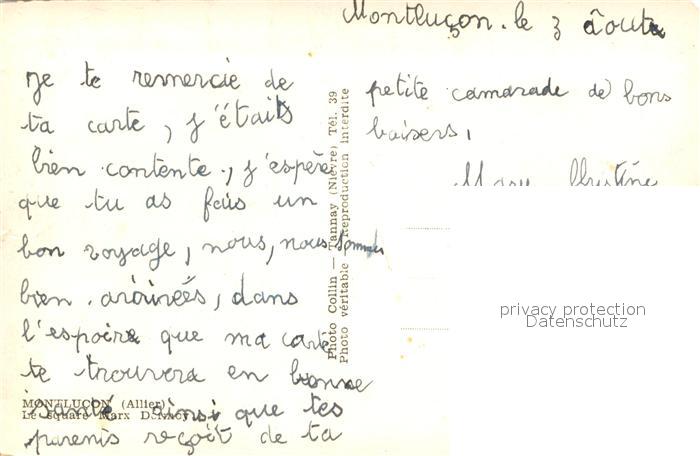 Montluçon. le 3 âoute
je te remercie de
ta carte, j'étaits
bien contente, j'espère
que tu as fais un
bon voyage, nous, nous sommes
bien arôineés, dans
l'espoire que ma carte
te trouvera en bonne
santé ainsi que tes
parenis reçoit de ta
petite camarade de bons
baisers,
Mary Christine
Photo Collin — Tannay (Nièvre) Tél. 39
Photo véritable — Reproduction interdite
MONTLUÇON (Allier)
Le square Marx Dormoy
privacy protection
Datenschutz